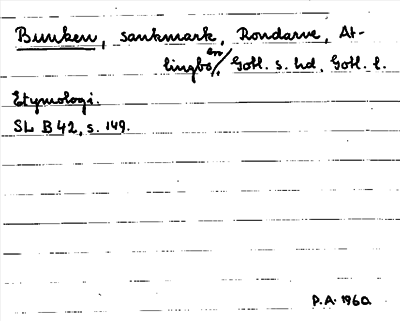 Bunken, sankmark, Rondarve, At-
lingbo sn/, Gotl. s. hd, Gotl. l.
Etymologi.
SL B 42, s. 149.
P.A. 1960